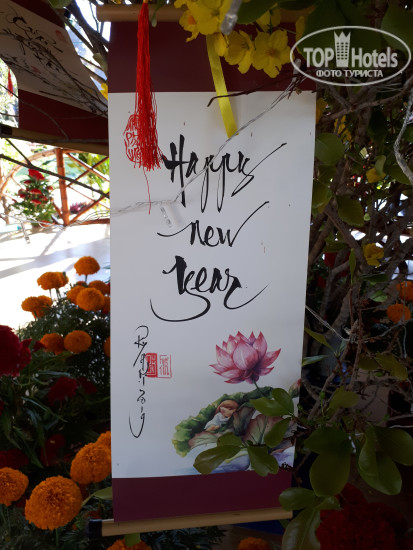 TOP Hotels
ФОТО ТУРИСТА
Happy
new
year
2019